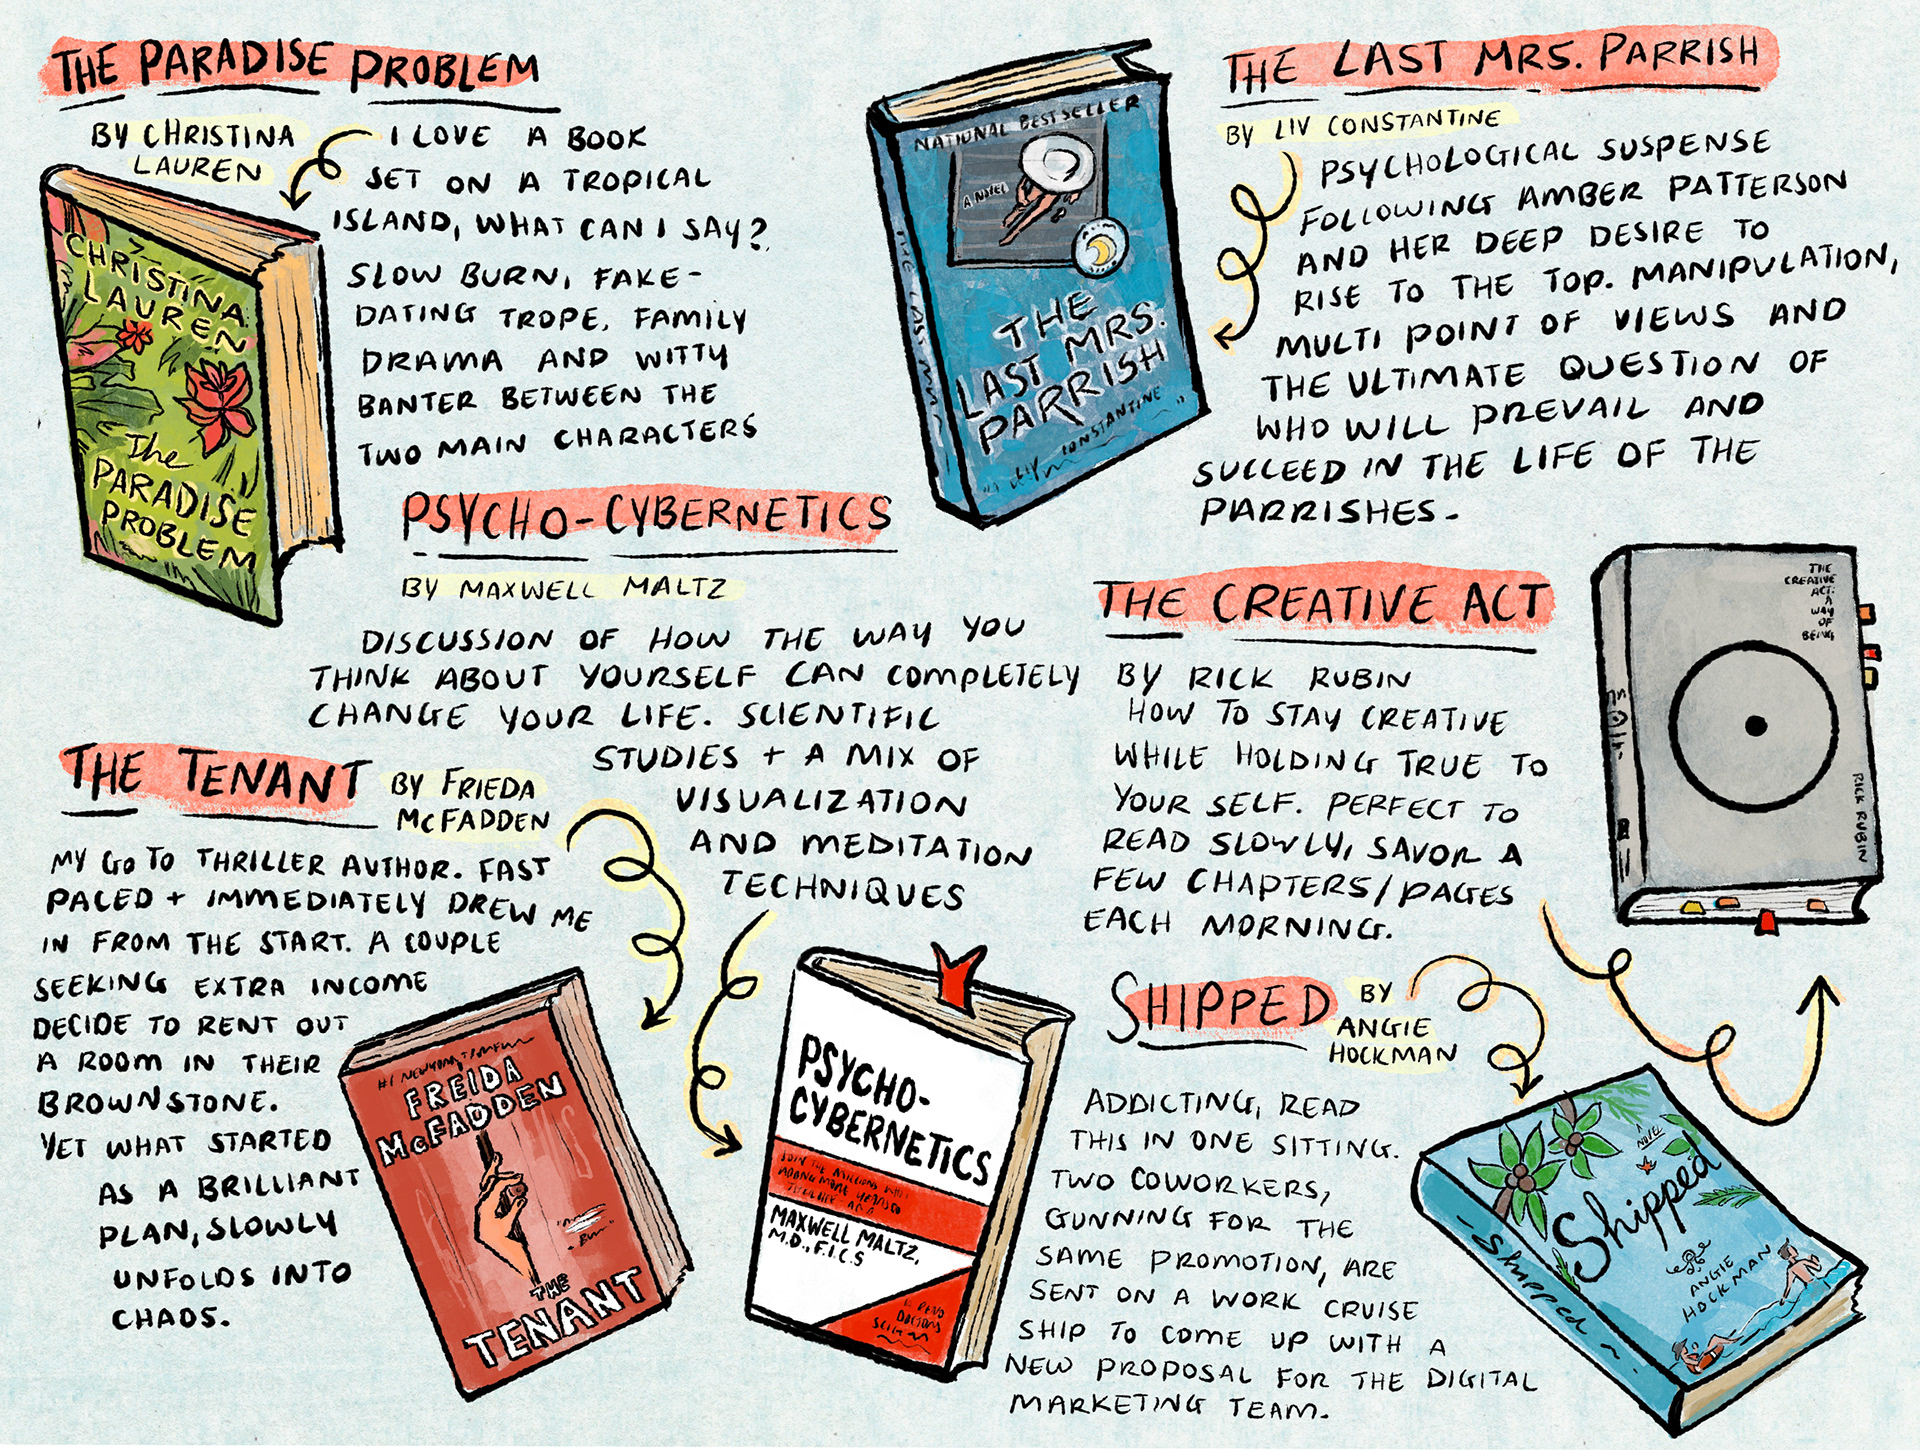 THE PARADISE PROBLEM
BY CHRISTINA
LAUREN
I LOVE A BOOK
SET ON A TROPICAL
ISLAND, WHAT CAN I SAY?
SLOW BURN, FAKE-
DATING TROPE, FAMILY
DRAMA AND WITTY
BANTER BETWEEN THE
TWO MAIN CHARACTERS
CHRISTINA
LAUREN
The
PARADISE
PROBLEM
NATIONAL BESTSELLER
A NOVEL
THE
LAST MRS.
PARRISH
LIV CONSTANTINE
THE LAST MRS. PARRISH
BY LIV CONSTANTINE
PSYCHOLOGICAL SUSPENSE
FOLLOWING AMBER PATTERSON
AND HER DEEP DESIRE TO
RISE TO THE TOP. MANIPULATION,
MULTI POINT OF VIEWS AND
THE ULTIMATE QUESTION OF
WHO WILL PREVAIL AND
SUCCEED IN THE LIFE OF THE
PARRISHES.
PSYCHO-CYBERNETICS
BY MAXWELL MALTZ
DISCUSSION OF HOW THE WAY YOU
THINK ABOUT YOURSELF CAN COMPLETELY
CHANGE YOUR LIFE. SCIENTIFIC
STUDIES + A MIX OF
VISUALIZATION
AND MEDITATION
TECHNIQUES
PSYCHO-
CYBERNETICS
JOIN THE MILLIONS
MAXWELL MALTZ,
M.D., F.I.C.S
THE CREATIVE ACT
BY RICK RUBIN
HOW TO STAY CREATIVE
WHILE HOLDING TRUE TO
YOUR SELF. PERFECT TO
READ SLOWLY, SAVOR A
FEW CHAPTERS/PAGES
EACH MORNING.
THE
CREATIVE
ACT:
A
WAY
OF
BEING
RICK RUBIN
THE TENANT
BY FRIEDA
MCFADDEN
MY GO TO THRILLER AUTHOR. FAST
PACED + IMMEDIATELY DREW ME
IN FROM THE START. A COUPLE
SEEKING EXTRA INCOME
DECIDE TO RENT OUT
A ROOM IN THEIR
BROWNSTONE.
YET WHAT STARTED
AS A BRILLIANT
PLAN, SLOWLY
UNFOLDS INTO
CHAOS.
FREIDA
McFADDEN
THE
TENANT
SHIPPED
BY
ANGIE
HOCKMAN
ADDICTING, READ
THIS IN ONE SITTING.
TWO COWORKERS,
GUNNING FOR THE
SAME PROMOTION, ARE
SENT ON A WORK CRUISE
SHIP TO COME UP WITH A
NEW PROPOSAL FOR THE DIGITAL
MARKETING TEAM.
A
NOVEL
Shipped
ANGIE
HOCKMAN
Shipped